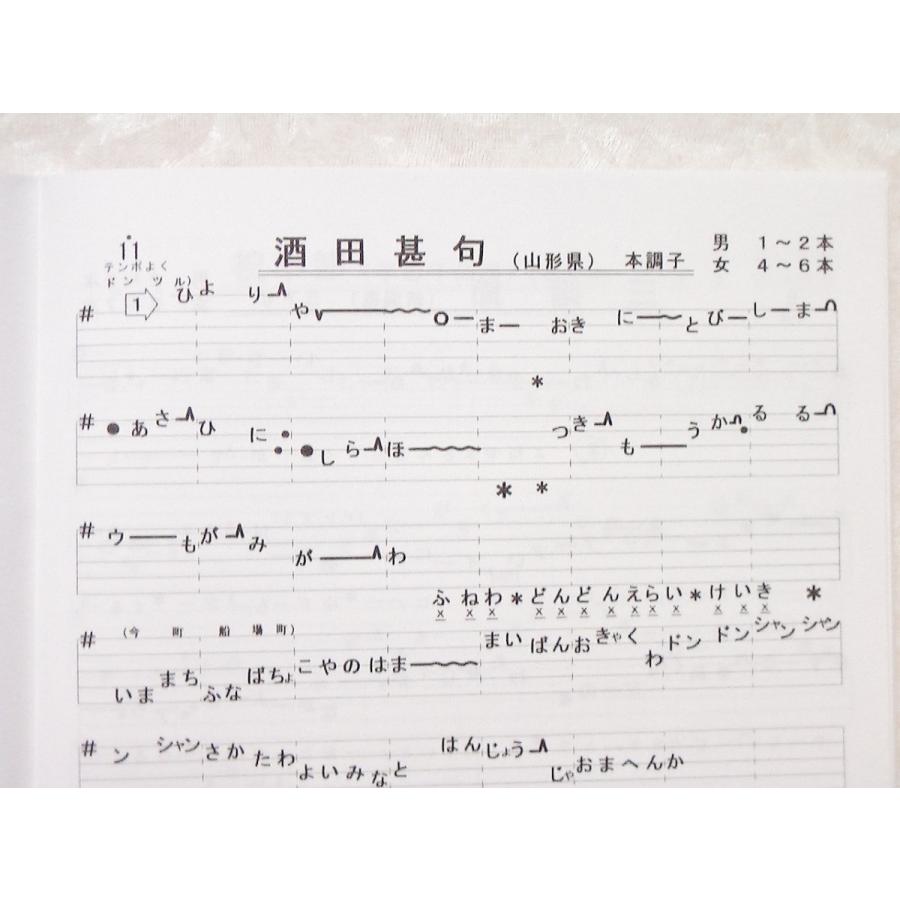 11
酒田甚句 (山形県) 本調子
男 1～2本
女 4～6本
テンポよく
ドン ツル)
1
# ひより やーーーoー まー おき にーとびー しーま
＊
# ●あさ ひ に ●しら ほー つき もーうか るる
＊ ＊
# ウーもが み がーわ
ふねわ＊どんどんえらい＊けいき ＊
(今町船場町)
# いままち ふなばちょ こやのはまー まいばんおきゃくわ ドン ドン シャン シャン
# ン シャン さかたわ よいみなと はんじょう じゃおまへんか